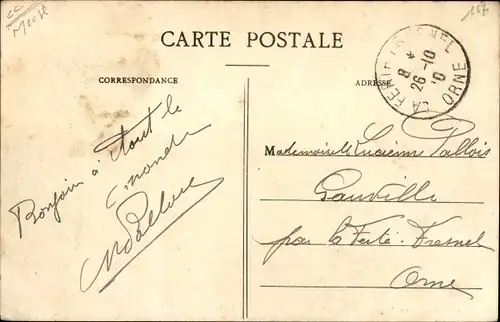 Meuse
157
CARTE POSTALE
CORRESPONDANCE
ADRESSE
LA FERTÉ-FRESNEL
8 *
26-10
10
ORNE
Bonjour à tout le
monde
Mademoiselle Lucienne Pallois
Gauville
par la Ferté-Fresnel
Orne